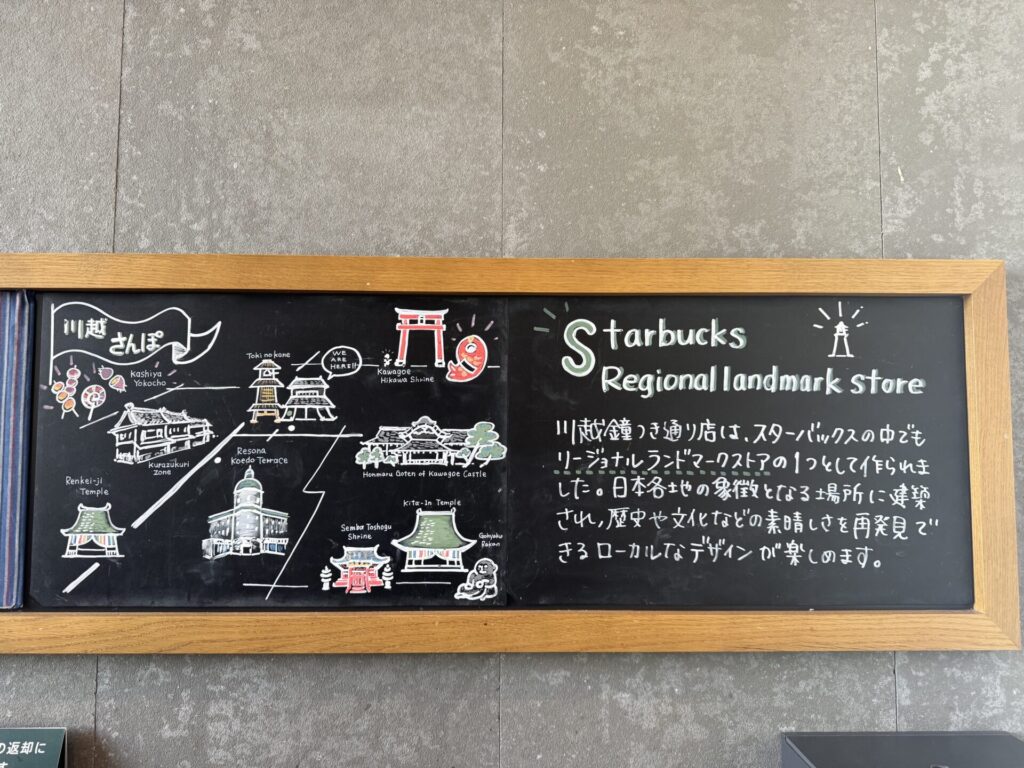 川越
さんぽ
Kashiya
Yokocho
Toki no kane
WE
ARE
HERE!!
Kawagoe
Hikawa Shrine
Kurazukuri
Zone
Resona
Koedo Terrace
Honmaru Goten of Kawagoe Castle
Renkei-ji
Temple
Kita-In Temple
Semba Toshogu
Shrine
Gohyaku
Rakan
Starbucks
Regional landmark store
川越鐘つき通り店は、スターバックスの中でも
リージョナルランドマークストアの1つとして作られま
した。日本各地の象徴となる場所に建築
され、歴史や文化などの素晴しさを再発見で
きるローカルなデザインが楽しめます。
の返却に
す